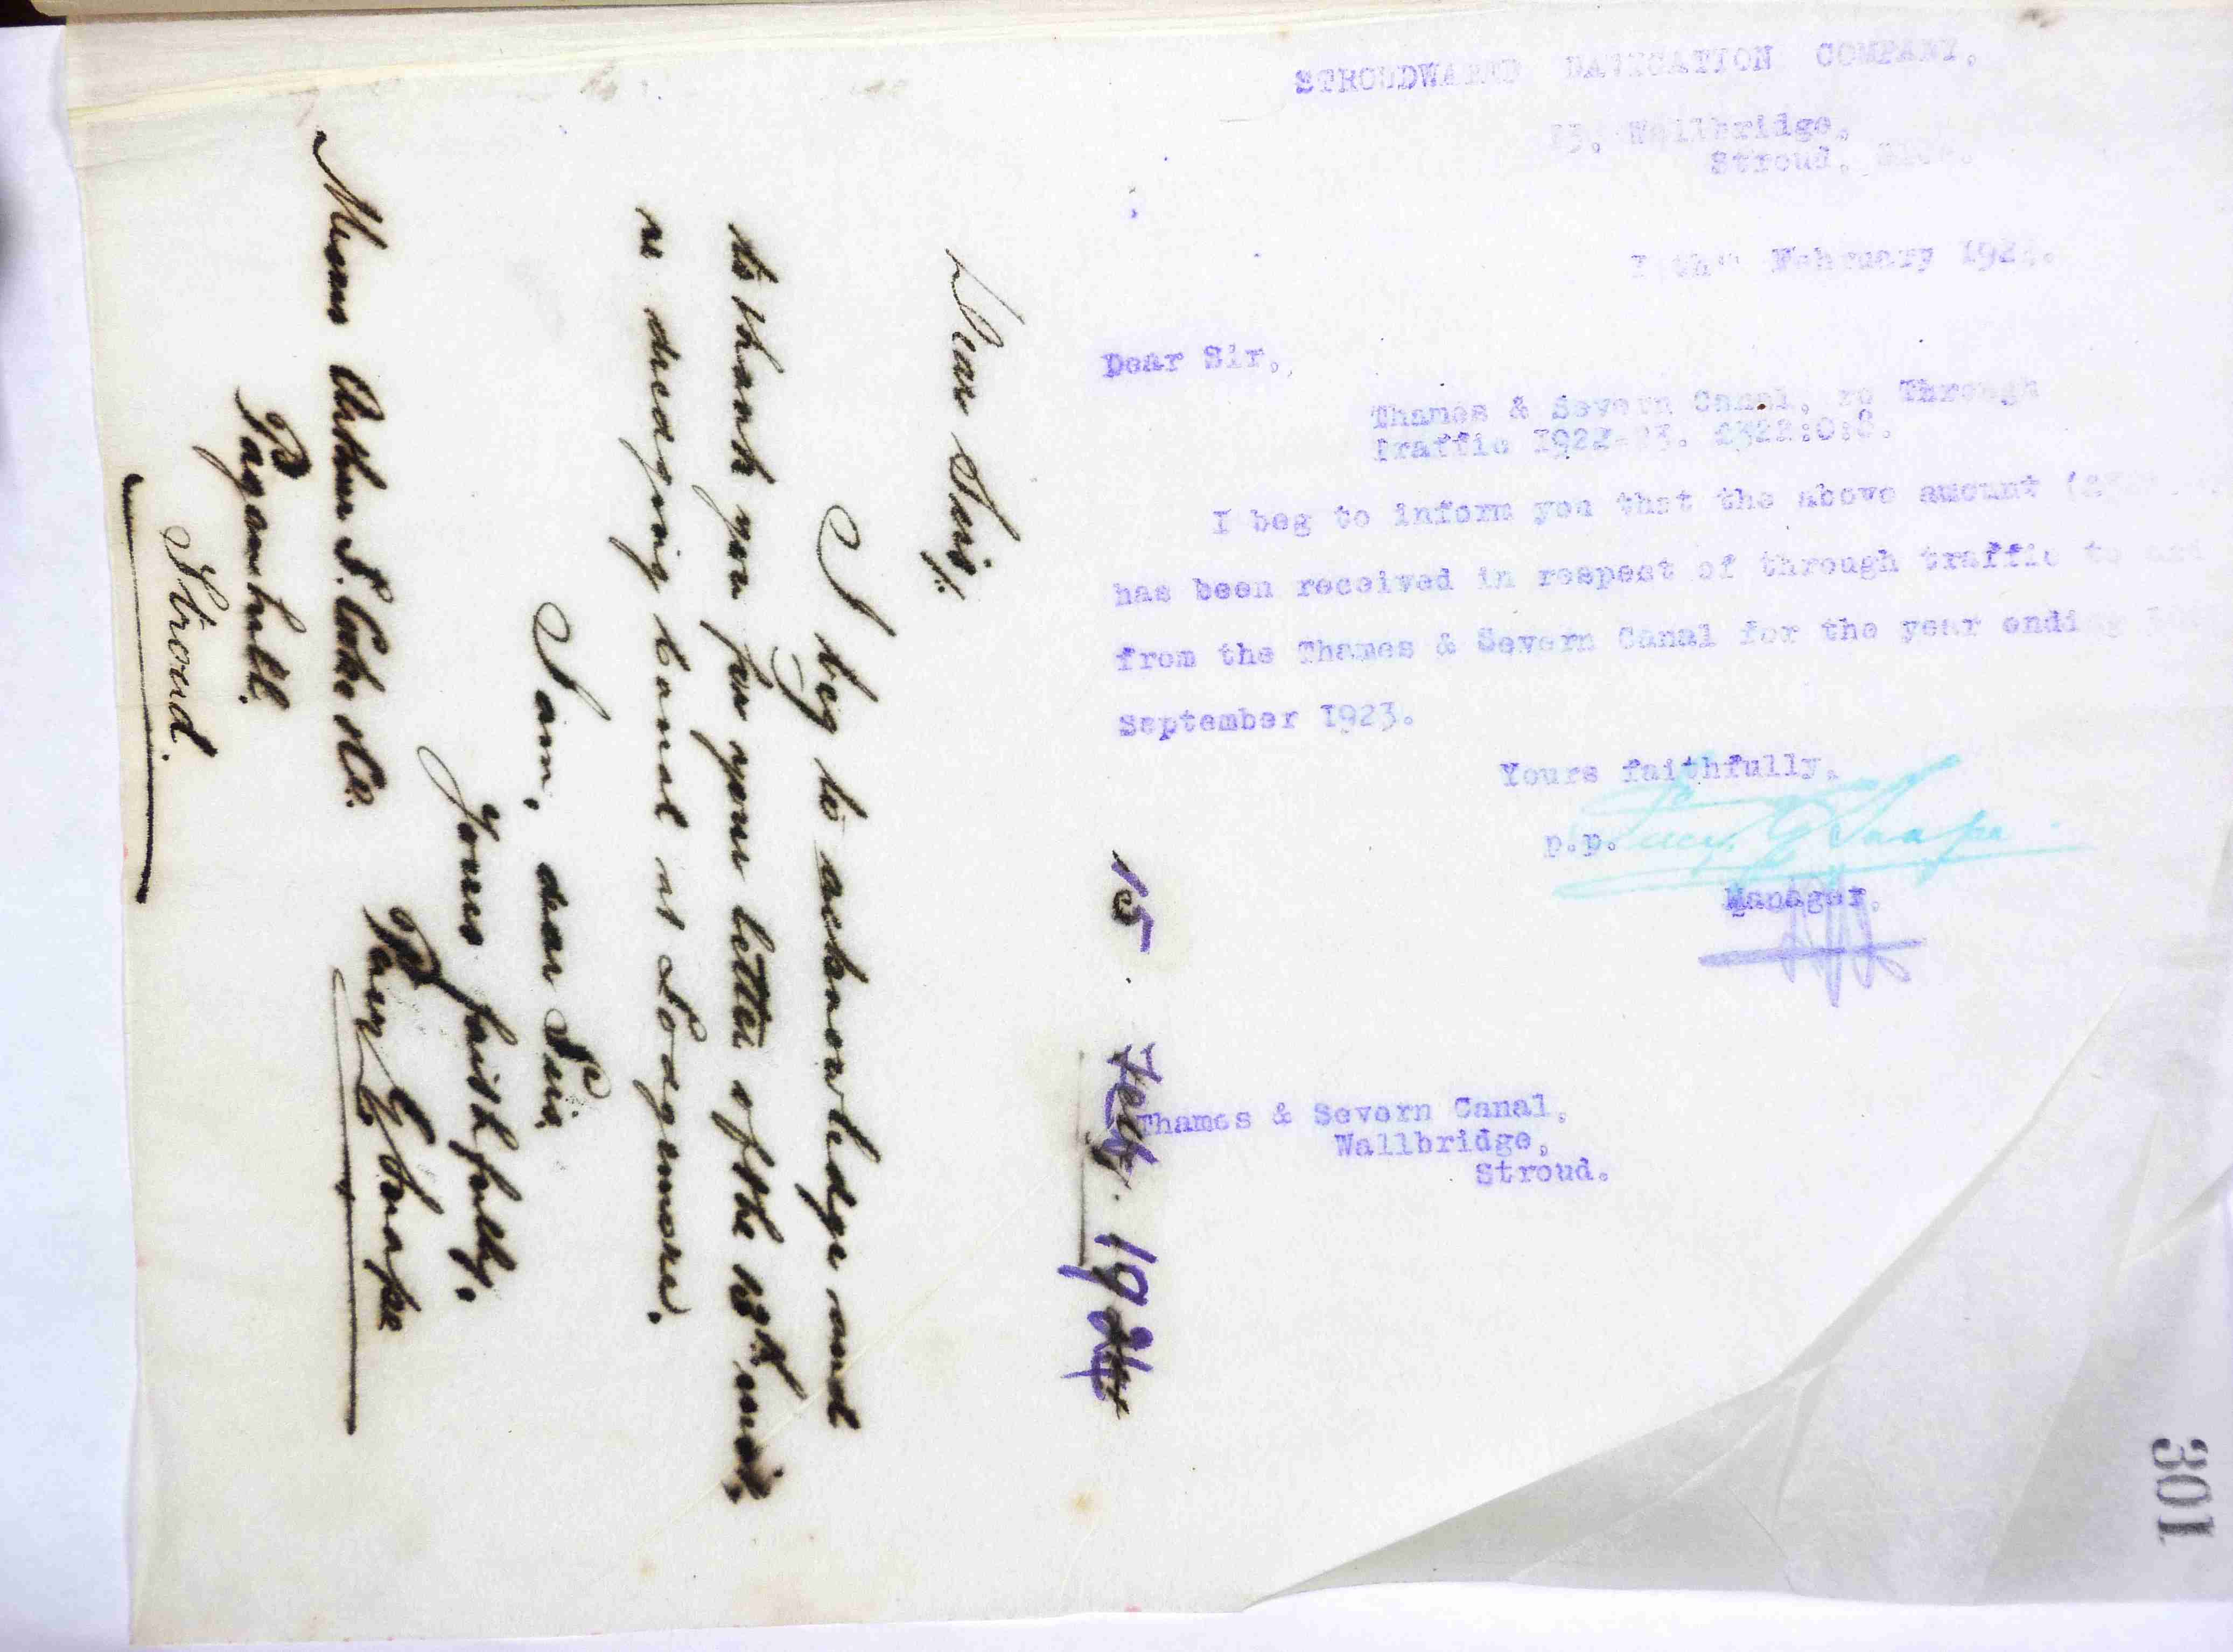 STROUDWATER NAVIGATION COMPANY.
13, Wallbridge,
Stroud,
February
Dear Sir,
Thames & Severn Canal, re Through
Traffic
I beg to inform you that the above amount
has been received in respect of through traffic to and
from the Thames & Severn Canal for the year ending
September 1923.
Yours faithfully,
p.p. Percy G Snape
Manager.
Thames & Severn Canal,
Wallbridge,
Stroud.
301
15 Feby. 1924
Dear Sirs,
I beg to acknowledge and
to thank you for your letter of the 13th inst,
re dredging Canal at Lodgemore.
I am, dear Sirs
Yours faithfully,
Percy G Snape
Messrs Arthur S. Cooke & Co.
Paganhill.
Stroud.